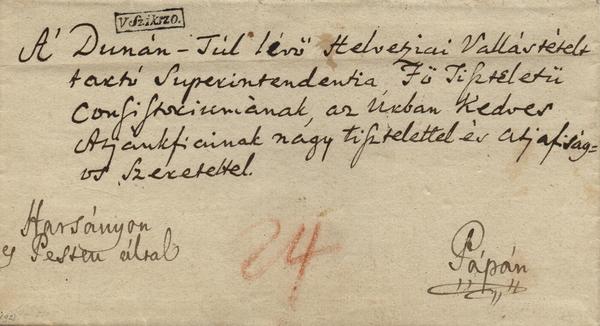 V. Szikszo.
A' Dunán-Túl lévő Helvetziai Vallástételt
tartó Superintendentia Fő Tiszteletü
Consistoriumának, az Úrban Kedves
Atyánkfiainak nagy tisztelettel és atyafiság=
os Szeretettel.
Harsányon
és Pesten által
24
Pápán